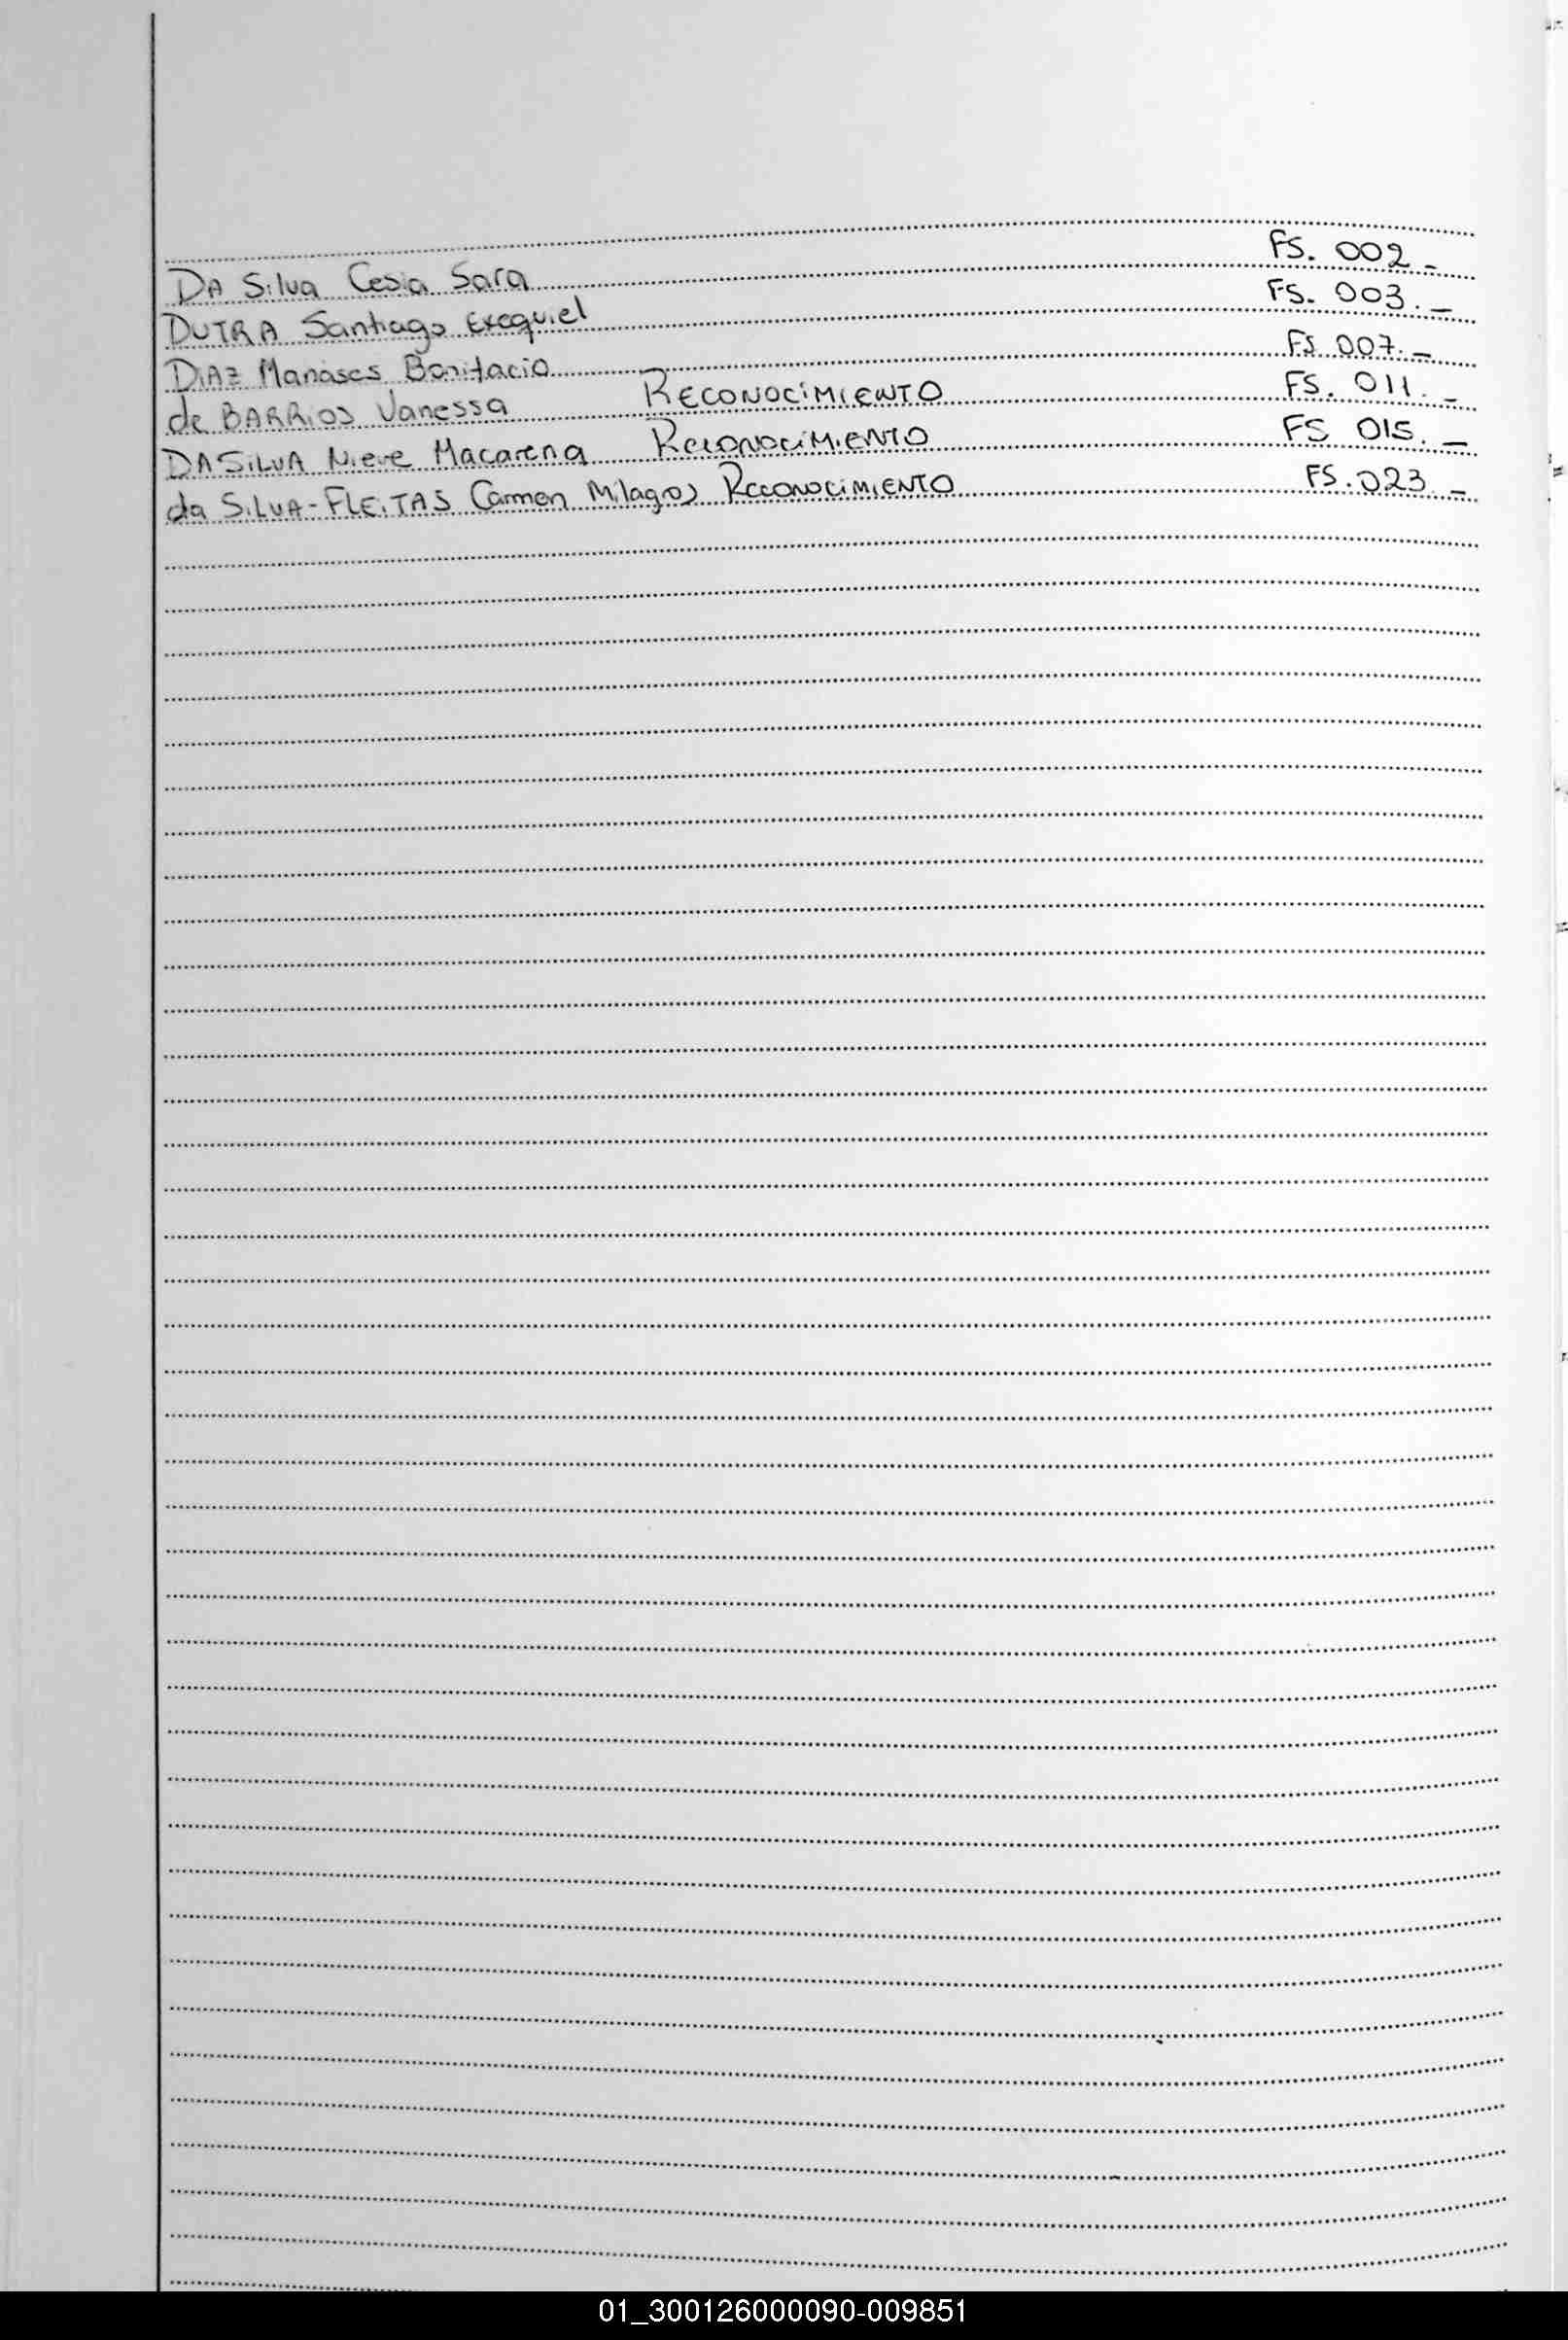 DA Silva Cesia Sara FS. 002 -
DUTRA Santiago Exequiel FS. 003. -
DiAz Manases Bonifacio FS 007. -
de BARRiOS Vanessa RECONOCiMiENTO FS. 011. -
DASiLVA Nieve Macarena RECONOCiMiENTO FS 015. -
da SiLVA-FLEiTAS Carmen Milagros RECONOCiMiENTO FS. 023 -
01_300126000090-009851